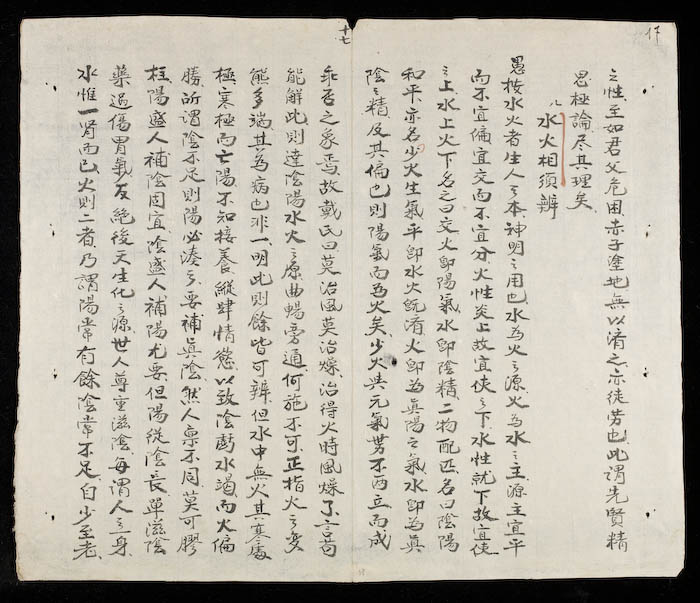 17
十七
之性至如君父危困赤子塗地無以濟之亦徒劳也此謂先賢精
思極論尽其理矣
水火相須辨
愚按水火者生人之本神明之用也水為火之源火為水之主源主宜平
而不宜偏宜交而不宜分火性炎上故宜使之下水性就下故宜使
之上水上火下名之曰交火卽陽氣水卽陰精二物配匹名曰陰陽
和平亦名少火生氣平卽水火旣濟火卽為眞陽之氣水卽為眞
陰之精及其偏也則陽氣而為火矣少火與元氣势不両立而成
乖否之象焉故戴氏曰莫治風莫治燥治得火時風燥了言苟
能解此則達陰陽水火之原曲暢旁通何施不可正指火之変
態多端其為病也非一明此則餘皆可辨但水中無火其寒處
極寒極而亡陽不知接養縱肆情慾以致陰虧水竭而火偏
勝所謂陰不足則陽必湊之要補眞陰然人禀不同莫可膠
柱陽盛人補陰固宜陰盛人補陽尤要但陽従陰長單滋陰
藥過傷胃氣反絶後天生化之源世人尊重滋陰每謂人之一身
水惟一腎而已火則二者乃謂陽常有餘陰常不足自少至老